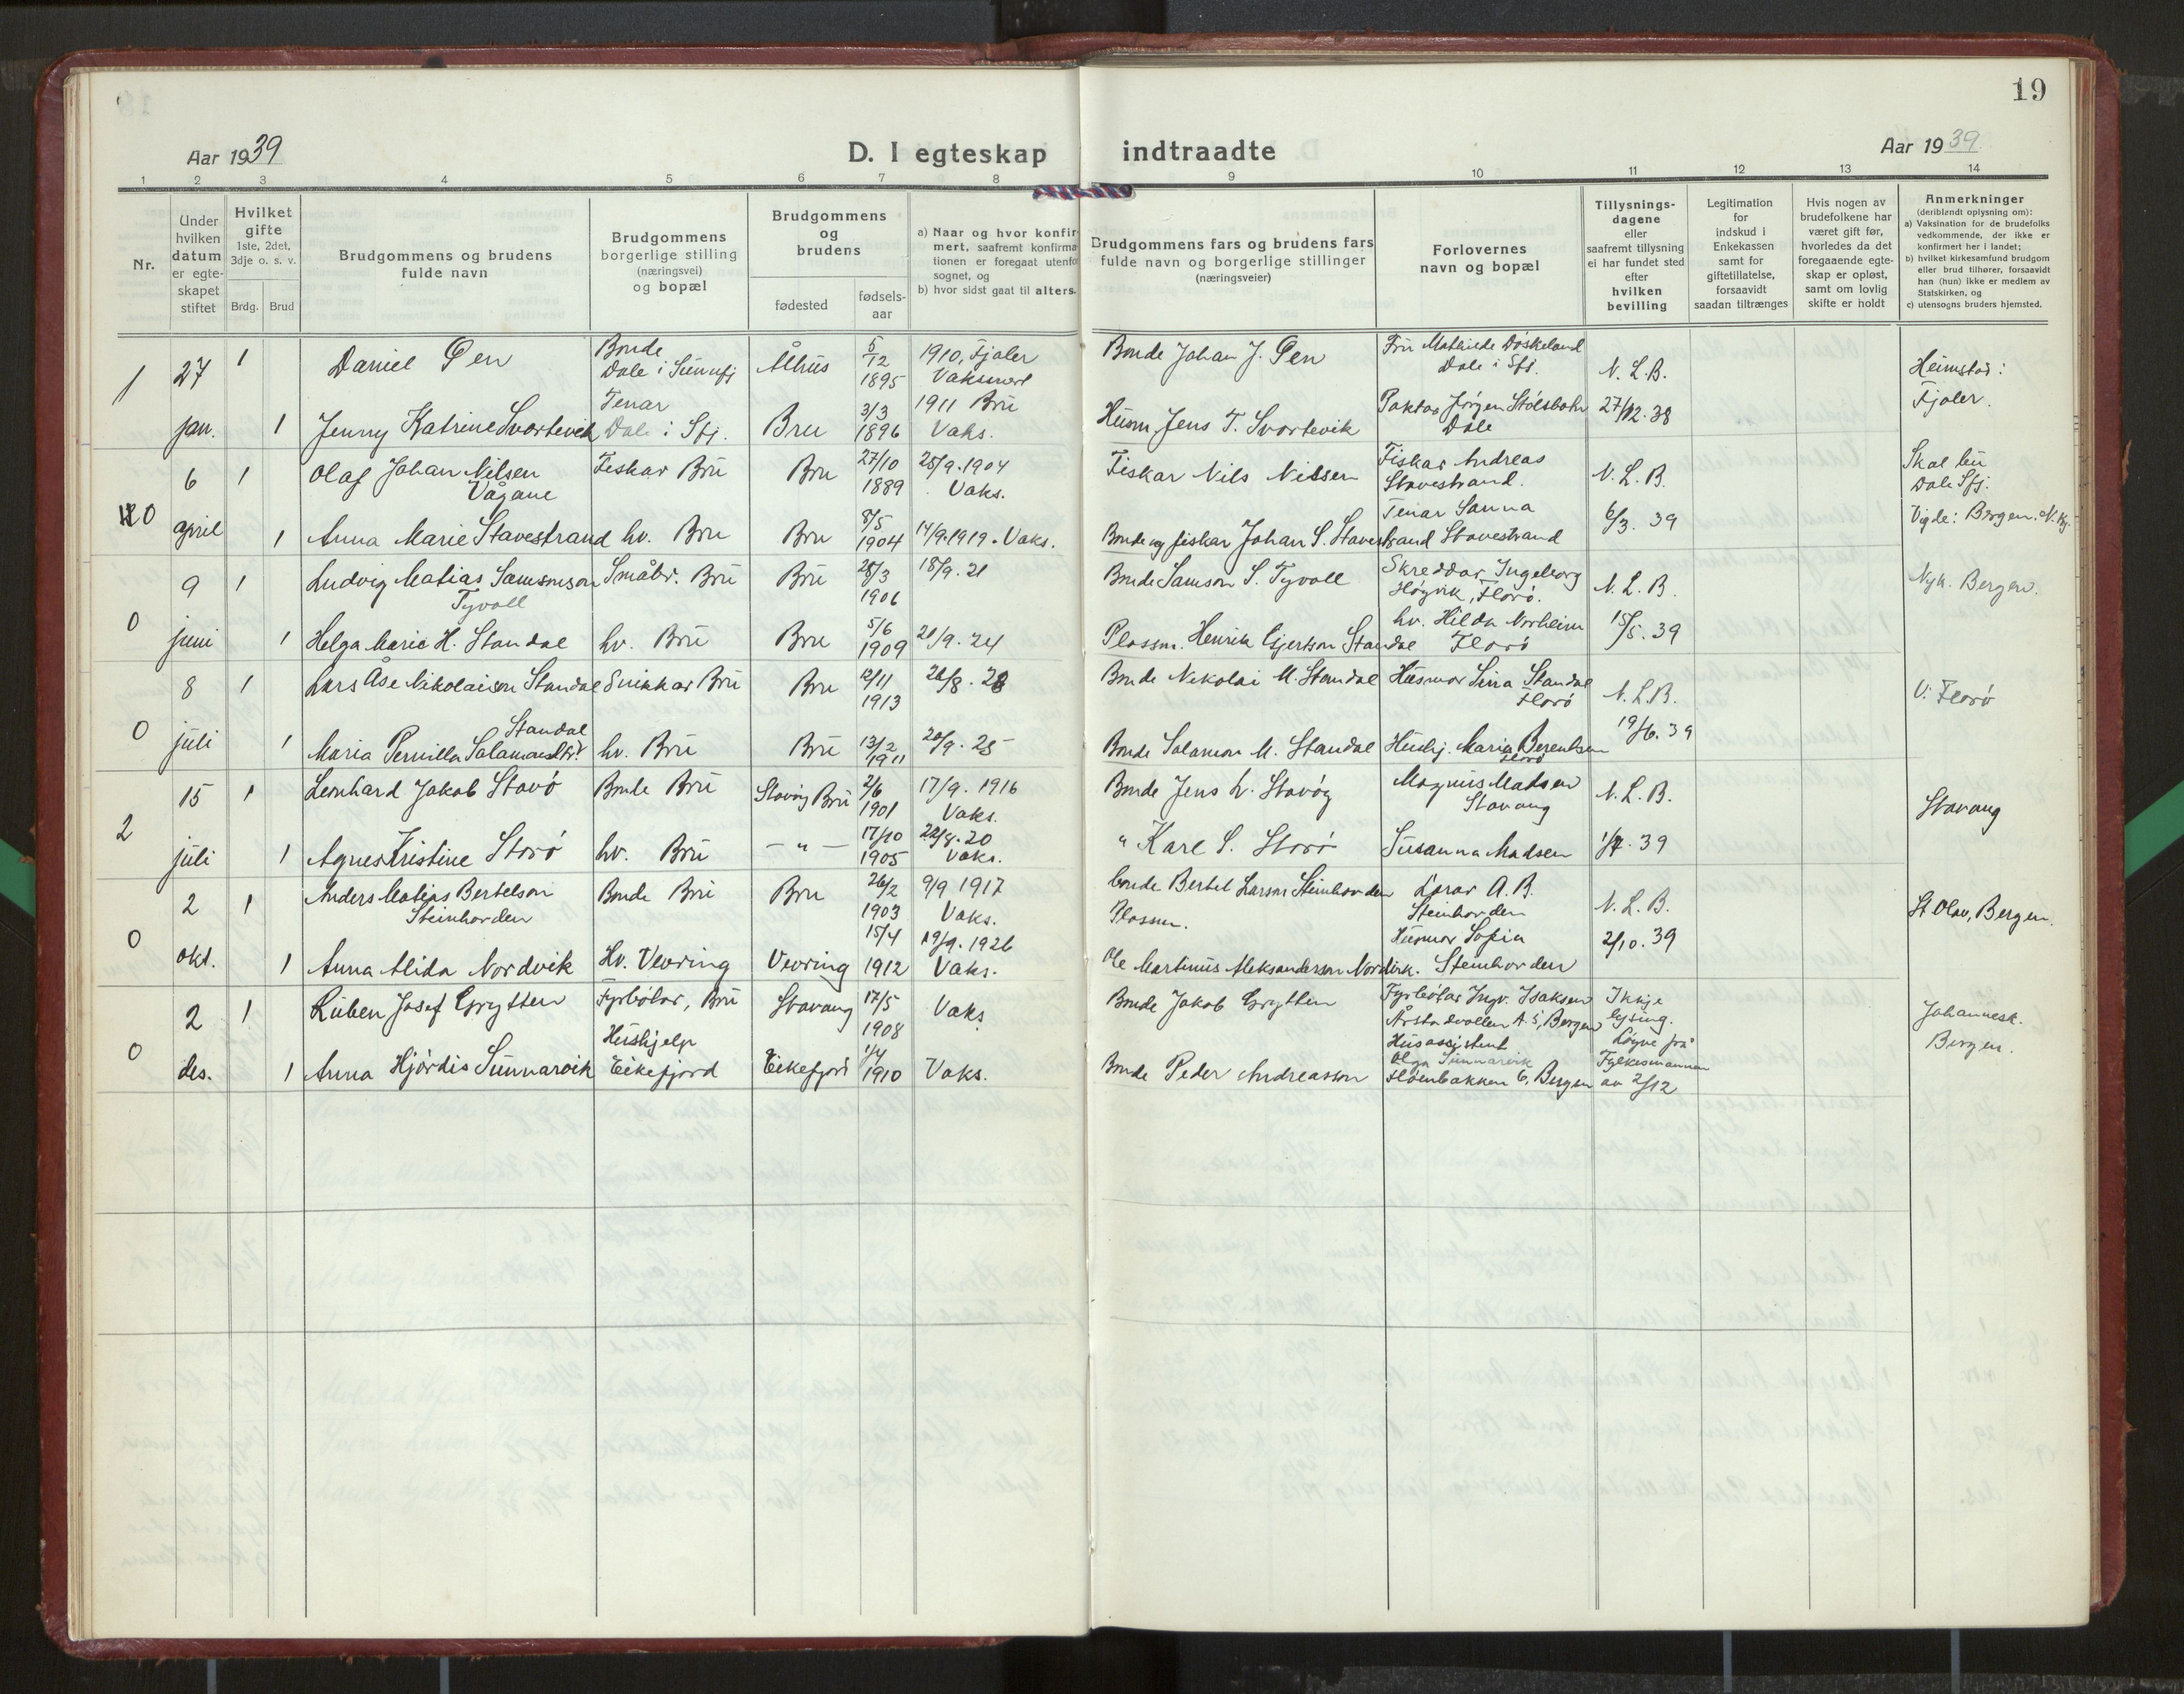 19
Aar 1939
D. I egteskap
indtraadte
Aar 1939
1 2 3 4 5 6 7 8 9 10 11 12 13 14
Nr.
Under hvilken datum er egte-skapet stiftet
Hvilket gifte 1ste, 2det, 3dje o. s. v.
Brdg. Brud
Brudgommens og brudens fulde navn
Brudgommens borgerlige stilling (næringsvei) og bopæl
Brudgommens og brudens
fødested
fødsels-aar
a) Naar og hvor konfir
mert, saafremt konfirma
tionen er foregaat utenfo
sognet, og
b) hvor sidst gaat til alters.
Brudgommens fars og brudens fars fulde navn og borgerlige stillinger (næringsveier)
Forlovernes navn og bopæl
Tillysnings-dagene eller saafremt tillysning ei har fundet sted efter hvilken bevilling
Legitimation for indskud i Enkekassen samt for giftetillatelse, forsaavidt saadan tiltrænges
Hvis nogen av brudefolkene har været gift før, hvorledes da det foregaaende egte-skap er opløst, samt om lovlig skifte er holdt
Anmerkninger
(deriblandt oplysning om):
a) Vaksination for de brudefolks vedkommende, der ikke er konfirmert her i landet;
b) hvilket kirkesamfund brudgom eller brud tilhører, forsaavidt han (hun) ikke er medlem av Statskirken, og
c) utensogns bruders hjemsted.
1 27 jan.
1 Daniel Øen Bonde Dale i Sunnfj Ålhus 5/12 1895 1910, Fjaler Vaksinert Bonde Johan J. Øen Fru Mathilde Døskeland Dale i Sfj. N. L. B. Heimstad: Fjaler.
1 Jenny Katrine Svortevik Tenar Dale i Sfj. Bru 3/3 1896 1911 Bru Vaks. Husm. Jens T. Svortevik Jørgen Stølsbotn Dale 27/12. 38
0 6 april
1 Olaf Johan Nilsen Vågane Fiskar Bru Bru 27/10 1889 25/9. 1904 Vaks. Fiskar Nils Nilssen Fiskar Andreas Stavestrand. N. L. B. Skal bu Dale Sfj.
1 Anna Marie Stavestrand hv. Bru Bru 8/5 1904 14/9. 1919. Vaks. Bonde og fiskar Johan S. Stavestrand Tenar Sanna Stavestrand 6/3. 39 Vigde: Bergen.
0 9 juni
1 Ludvig Matias Samsonson Tyvoll Småbr. Bru Bru 28/3 1906 18/9. 21 Bonde Samson S. Tyvoll Skreddar Ingeborg Høgvik, Florø. N. L. B. Nyk. Bergen.
1 Helga Marie H. Standal hv. Bru Bru 5/6 1909 21/9. 24 Plassm. Henrik Gjertson Standal hv. Hilda Norheim Florø 15/5. 39
0 8 juli
1 Lars Åse Nikolaison Standal Snikkar Bru Bru 12/11 1913 26/8. 28 Bonde Nikolai M. Standal Husmor Sina Standal Florø N. L. B. V: Florø
1 Maria Pernilla Salamonsdtr. Standal hv. Bru Bru 13/2 1911 20/9. 25 Bonde Salamon M. Standal Hushj. Maria Berentsen Florø 19/6. 39
2 15 juli
1 Leonhard Jakob Stavø Bonde Bru Stavøy Bru 2/6 1901 17/9. 1916 Vaks. Bonde Jens L. Stavøy Magnus Madsen Stavang N. L. B. Stavang
1 Agnes Kristine Storø hv. Bru — " — 17/10 1905 22/8. 20 Vaks. " Karl S. Storø Susanna Madsen 1/7. 39
0 2 okt.
1 Anders Matias Bertelson Steinhovden Bonde Bru Bru 26/2 1903 9/9 1917 Vaks. bonde Bertel Larson Steinhovden Lærar A. B. Steinhovden N. L. B. St Olav, Bergen.
1 Anna Alida Nordvik Hv. Vevring Vevring 15/4 1912 19/9. 1926 Vaks. Plassm. Ole Martinus Aleksanderson Nordvik. Husmor Sofia Steinhovden 2/10. 39
0 2 des.
1 Ruben Josef Grytten Fyrbøtar, Bru Stavang 17/5 1908 Vaks. Bonde Jakob Grytten Fyrbøtar Ingv. Isaksen Årstadvollen A. 5, Bergen Ikkje lysing. Løyve frå Fylkesmannen av 2/12 Johannesk. Bergen.
1 Anna Hjørdis Sunnarvik Hushjelp Eikefjord Eikefjord 1/4 1910 Vaks. Bonde Peder Andreasson Husassistent Olga Sunnarvik Fløenbakken 6, Bergen